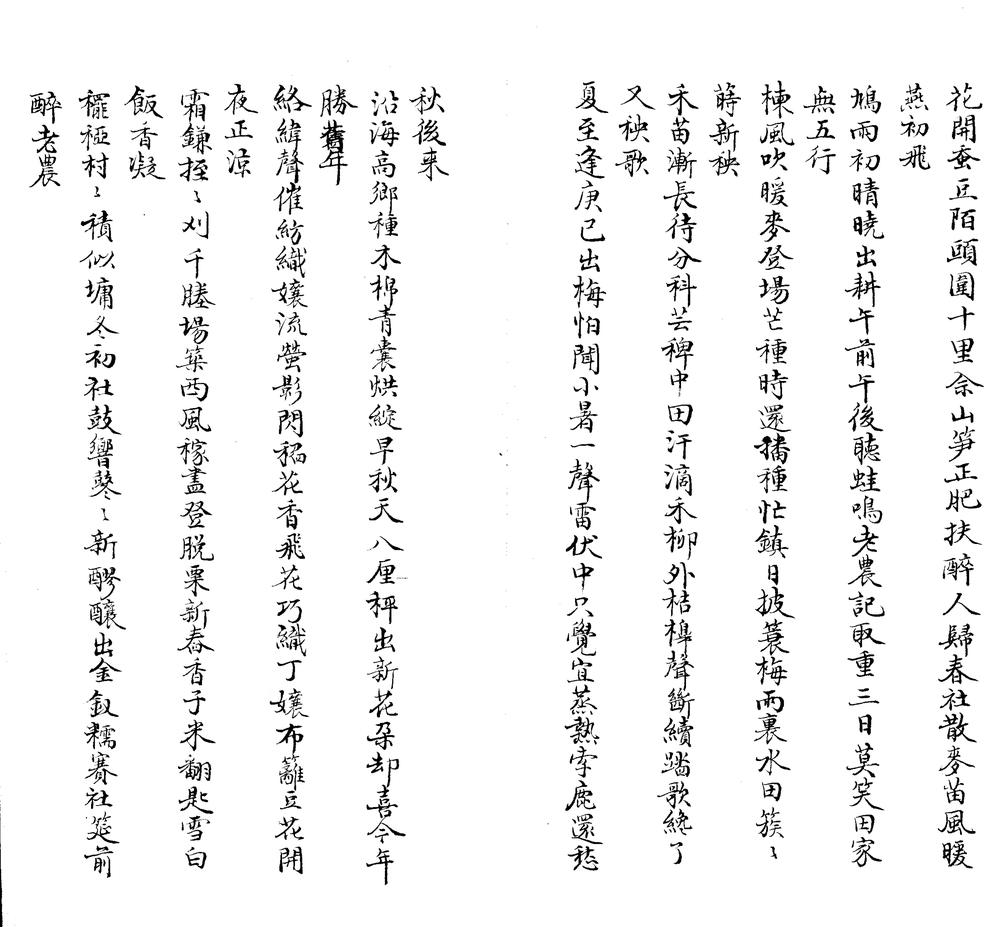 花開蚕豆陌頭圍十里佘山笋正肥扶醉人歸春社散麥苗風暖
燕初飛
鳩雨初晴曉出耕午前午後聽蛙鳴老農記取重三日莫笑田家
無五行
楝風吹暖麥登場芒種時還播種忙鎮日披蓑梅雨裏水田簇〻
蒔新秧
禾苗漸長待分科芸稗中田汗滴禾柳外桔橰聲斷續踏歌終了
又秧歌
夏至逢庚已出梅怕聞小暑一聲雷伏中只覺宜蒸熱孛鹿還愁
秋後來
沿海高鄉種木棉青囊烘綻早秋天八厘秤出新花朵却喜今年
勝舊年
絡緯聲催紡織孃流螢影閃稻花香飛花巧織丁孃布籬豆花開
夜正涼
霜鎌挃〻刈千塍場築西風稼盡登脱粟新舂香子米翻匙雪白
飯香凝
䆉稏村〻積似墉冬初社鼓響鼕〻新醪釀出金釵糯賽社筵前
醉老農